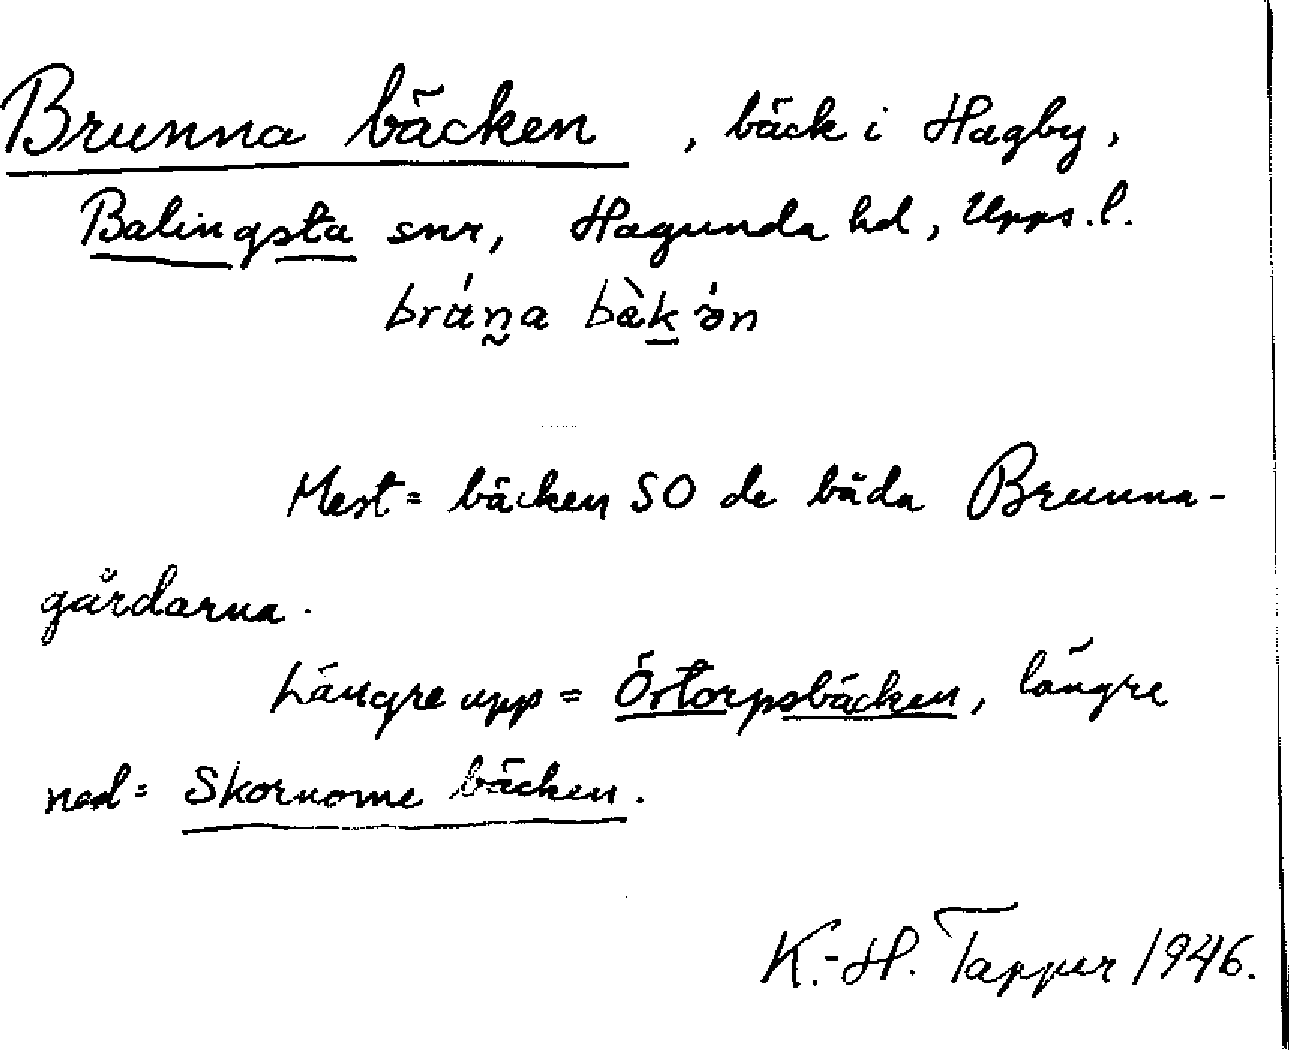 Brunna bäcken, bäck i Hagby,
Balingsta snr, Hagunda hd, Upps. l.
Mest = bäcken SO de båda Brunna-
gårdarna.
Längre upp = Örtorpsbäcken, längre
ned = Skornome bäcken.
K.-H. Tapper 1946.